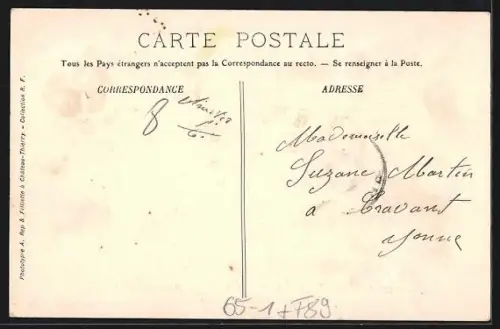 CARTE POSTALE
Tous les Pays étrangers n'acceptent pas la Correspondance au recto. — Se renseigner à la Poste.
CORRESPONDANCE
ADRESSE
8
Mademoiselle
Suzane Martin
à Cravant
Yonne
Phototypie A. Rep & Filliette à Château-Thierry – Collection R. F.
65-1 + F89